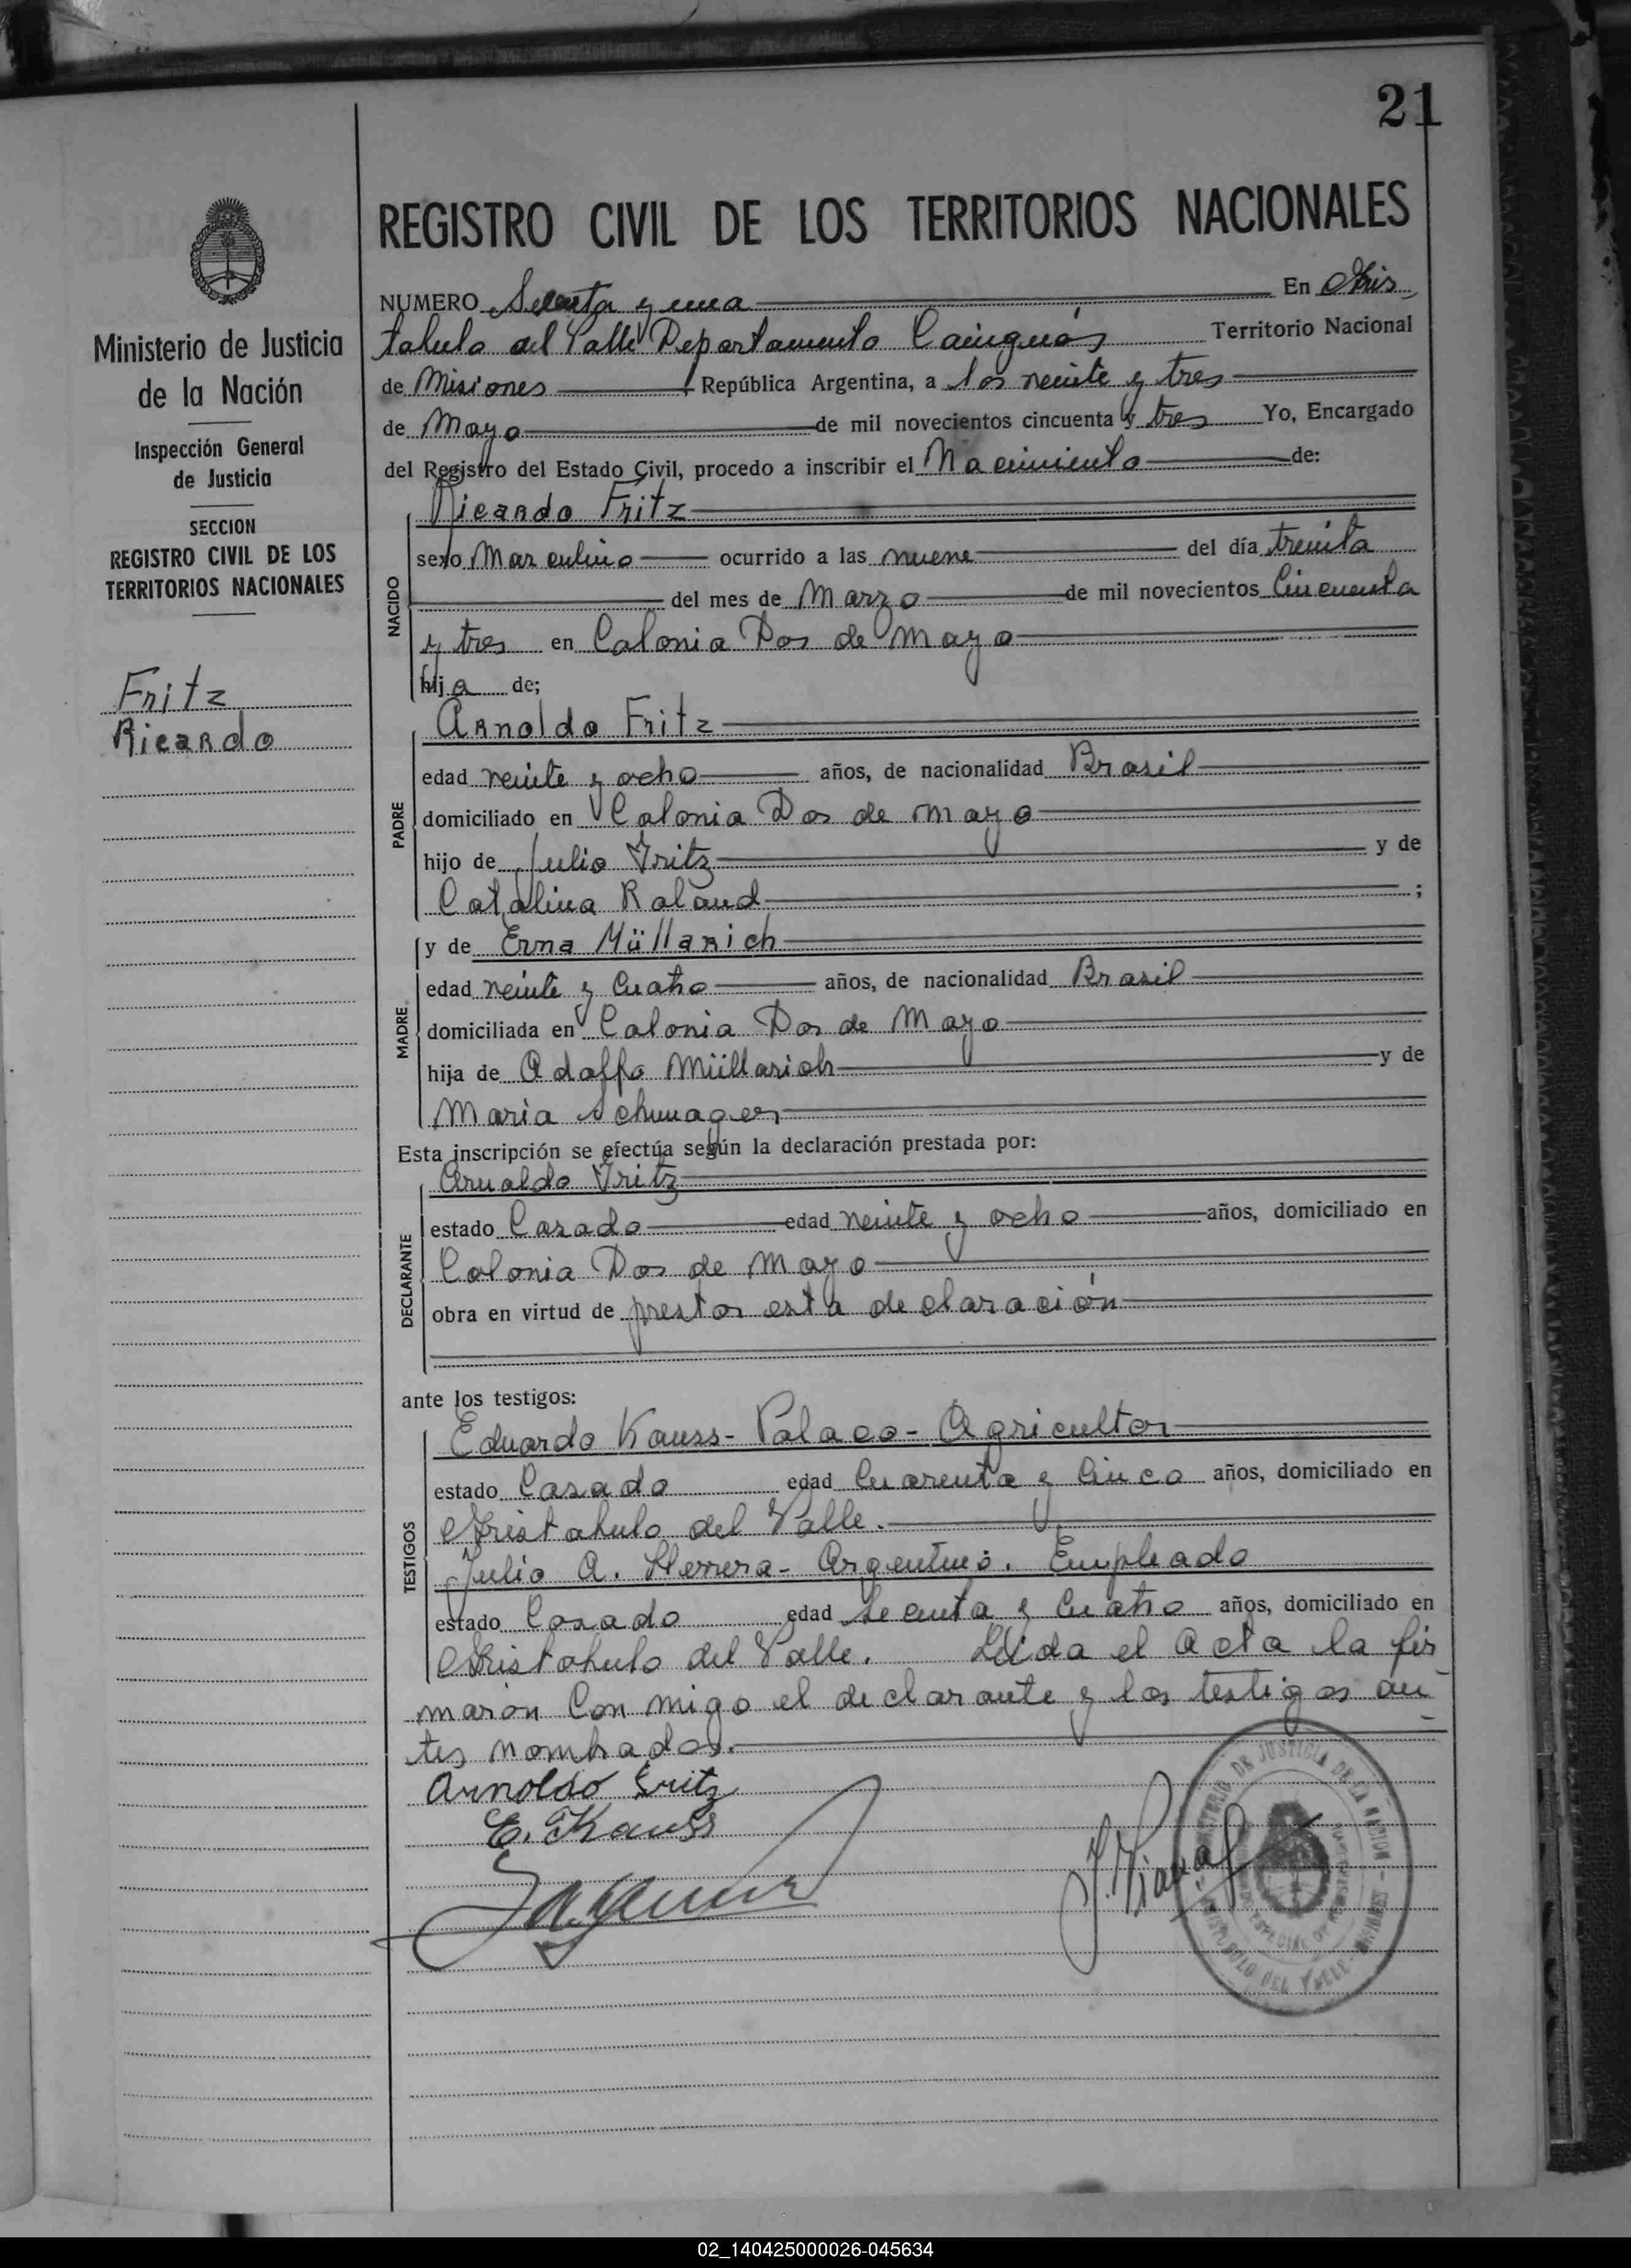 21
REGISTRO CIVIL DE LOS TERRITORIOS NACIONALES
Ministerio de Justicia
de la Nación
Inspección General
de Justicia
SECCION
REGISTRO CIVIL DE LOS
TERRITORIOS NACIONALES
Fritz
Ricardo
NUMERO y una En Aris
tobulo del Valle Departamento Cainguás Territorio Nacional
de Misiones República Argentina, a los veinte y tres
de Mayo de mil novecientos cincuenta y tres Yo, Encargado
del Registro del Estado Civil, procedo a inscribir el Nacimiento de:
NACIDO
Ricardo Fritz
sexo Masculino ocurrido a las nueve del día treinta
del mes de Marzo de mil novecientos Cincuenta
y tres en Colonia Dos de Mayo
hijo de;
PADRE
Arnoldo Fritz
edad veinte y ocho años, de nacionalidad Brasil
domiciliado en Colonia Dos de Mayo
hijo de Julio Fritz y de
Catalina Roland ;
MADRE
y de Erna Müllarich
edad veinte y Cuatro años, de nacionalidad Brasil
domiciliada en Colonia Dos de Mayo
hija de Adolfo Müllarich y de
Maria
Esta inscripción se efectúa según la declaración prestada por:
DECLARANTE
Arnoldo Fritz
estado Casado edad veinte y ocho años, domiciliado en
Colonia Dos de Mayo
obra en virtud de prestar esta declaración
ante los testigos:
TESTIGOS
Eduardo Kauss - Polaco - Agricultor
estado Casado edad Cuarenta y Cinco años, domiciliado en
Aristobulo del Valle.
Julio A. Herrera - Argentino. Empleado
estado Casado edad y Cuatro años, domiciliado en
Aristobulo del Valle. Leida el Acta la fir
maron Con migo el declarante y los testigos an
tes nombrados.
Arnoldo Fritz
E. Kauss
MINISTERIO DE JUSTICIA DE LA NACION
ARISTOBULO DEL VALLE - MISIONES
02_140425000026-045634